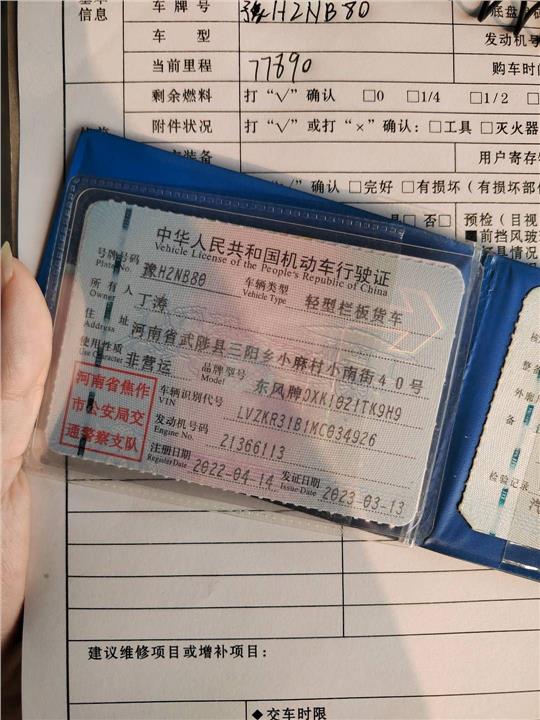 基本
信息
车牌号 豫H2NB80 底盘
车型 发动机号
当前里程 77890 购车时
剩余燃料 打“√”确认 □0 □1/4 □1/2
附件状况 打“√”或打“×”确认：□工具 □灭火器
装备 用户寄存
”确认 □完好 □有损坏（有损坏部
具□ 否□ 预检（目视
■前挡风玻
具情况
中华人民共和国机动车行驶证
Vehicle License of the People's Republic of China
号牌号码 豫H2NB80 车辆类型 轻型栏板货车
Plate No. Vehicle Type
所有人 丁涛
Owner
住址 河南省武陟县三阳乡小麻村小南街40号
Address
使用性质 非营运 品牌型号 东风牌DXK1021TK9H9
Use Character Model
河南省焦作
市公安局交
通警察支队
车辆识别代号 LVZKR31B1MC034926
VIN
发动机号码 21366113
Engine No.
注册日期 2022-04-14 发证日期 2023-03-13
Register Date Issue Date
整备
外廓
备
检验记录
汽
建议维修项目或增补项目：
◆交车时限